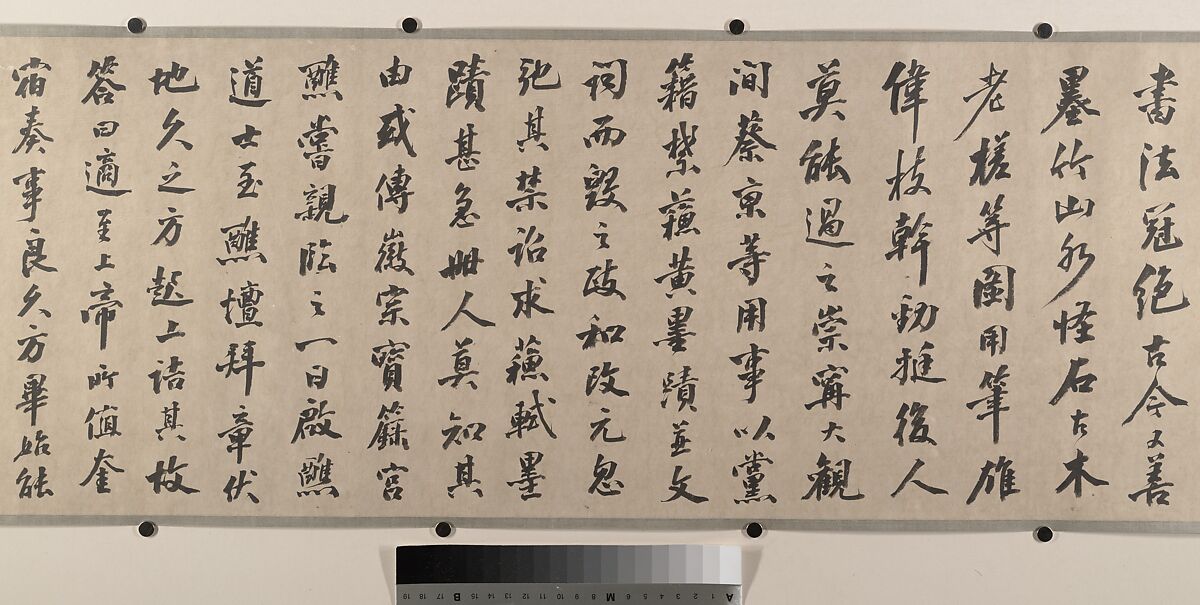 書法冠絶古今又善
墨竹山水怪石古木
老槎等圖用筆雄
偉枝幹勁挺後人
莫能過之崇寧大觀
間蔡京等用事以黨
籍禁蘓黄墨蹟並文
詞而毀之政和改元忽
弛其禁詔求蘓軾墨
蹟甚急世人莫知其
由或傳徽宗寳籙宮
醮嘗親臨之一日啟醮
道士至醮壇拜章伏
地久之方起上詰其故
答曰適至上帝所值奎
宿奏事良久方畢始能
A 1 2 3 4 5 6 M 8 9 10 11 12 13 14 15 B 17 18 19